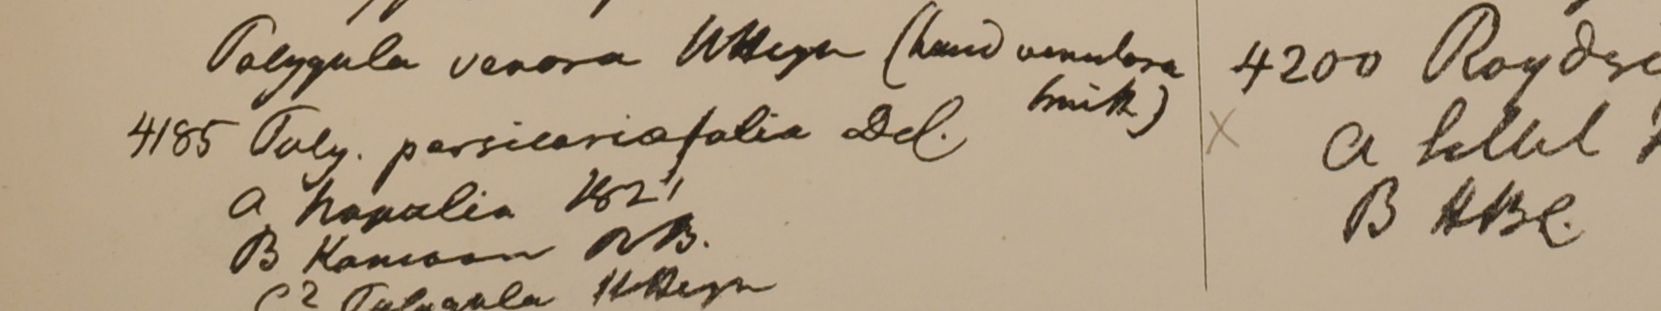 Polygala venosa HHeyn (haud venulosa
Smith)
4185 Poly. persicariaefolia Del.
a Napalia 1821
B Kamaon RB.
C 2 Polygala HHeyn
4200 Roydsi
X a Sillet
B HBC.